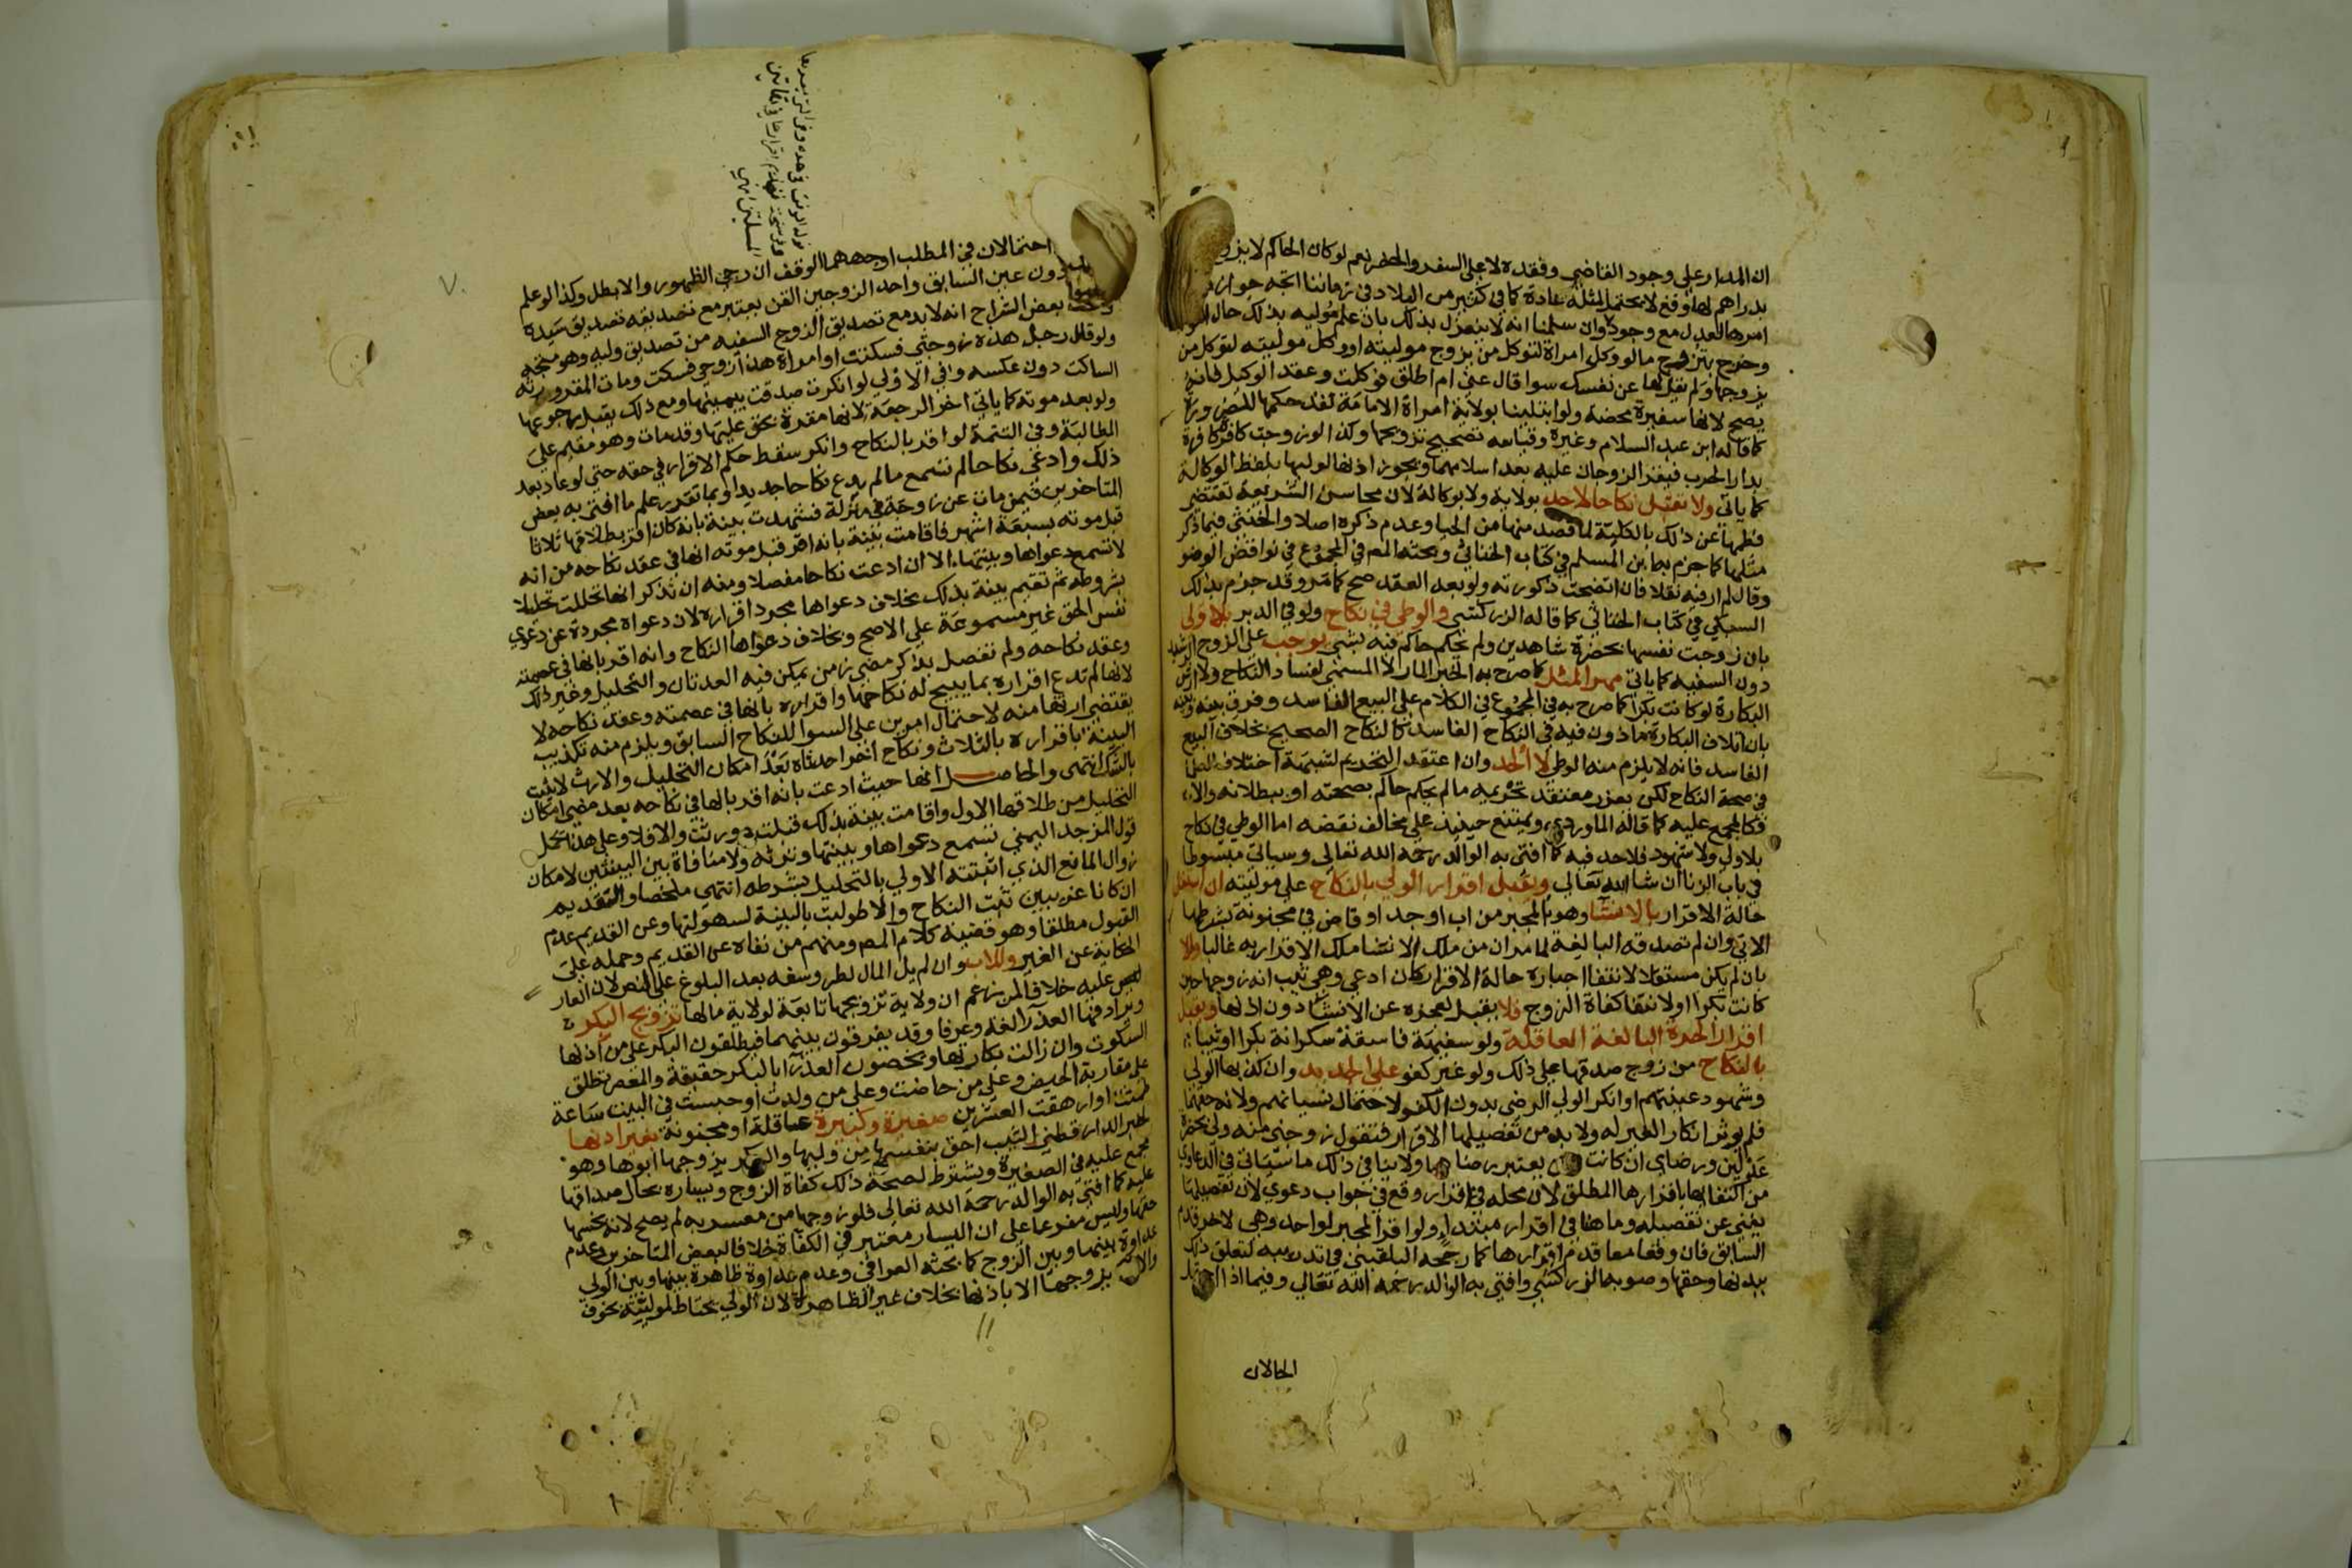 ان المدار على وجود القاضي وفقده لا على السفر والحضر نعم لو كان الحاكم لا يزوج
بدراهم لها وقع لا يحتمل مثله عادة كما في كثير من البلاد في زماننا اتجه جواز
امرها لعدل مع وجوده وان سلمنا انه لا ينعزل بذلك بان علم موليه بذلك حال
وخرج بتزوج ما لو وكل امراة لتوكل من يزوج موليته او وكل موليته لتوكل من
يزوجها ولم يقل لها عن نفسك سوا قال عني ام اطلق فوكلت وعقد الوكيل فانه
يصح لانها سفيرة محضة ولو ابتلينا بولاية امراة الامامة نفذ حكمها للضرورة
كما قاله ابن عبد السلام وغيره وقياسه تصحيح تزويجها وكذا لو زوجت كافرة كافرة
بدار الحرب فيقر الزوجان عليه بعد اسلامهما ويجوز اذنها لوليها بلفظ الوكالة
كما ياتي ولا تقبل نكاحا لاحد بولاية ولا بوكالة لان محاسن الشريعة تقتضي
فطمها عن ذلك بالكلية لما قصد منها من الحيا وعدم ذكره اصلا والخنثى فيما ذكر
مثلها كما جزم به ابن المسلم في كتاب الخناثى وبحثه المص في المجموع في نواقض الوضو
وقال لم ار فيه نقلا فان اتضحت ذكورته ولو بعد العقد صح كما مر وقد جزم بذلك
السبكي في كتاب الخناثى كما قاله الزركشي والوطي في نكاح ولو في الدبر بلا ولي
بان زوجت نفسها بحضرة شاهدين ولم يحكم حاكم فيه بشي يوجب على الزوج الرشيد
دون السفيه كما ياتي مهر المثل كما صرح به الخبر المار لا المسمى لفساد النكاح ولا ارش
البكارة لو كانت بكرا كما صرح به في المجموع في الكلام على البيع الفاسد وفرق بينه وبينه
بان اتلاف البكارة ماذون فيه في النكاح الفاسد كالنكاح الصحيح بخلاف البيع
الفاسد فانه لا يلزم منه الوطي لا الحد وان اعتقد التحريم لشبهة اختلاف العلما
في صحة النكاح لكن يعزر معتقد تحريمه ما لم يحكم حاكم بصحته او ببطلانه والا
فكالمجمع عليه كما قاله الماوردي ويمتنع حينيذ على مخالف نقضه اما الوطي في نكاح
بلا ولي ولا شهود فلا حد فيه كما افتى به الوالد رحمه الله تعالى وسياتي مبسوطا
في باب الزنا ان شا الله تعالى ويقبل اقرار الولي بالنكاح على موليته ان استقل
حالة الاقرار بالانشا وهو المجبر من اب او جد او قاض في مجنونة بشرطها
الاتي وان لم تصدقه البالغة لما مر ان من ملك الانشا ملك الاقرار به غالبا والا
بان لم يكن مستقلا لانتفا اجباره حالة الاقرار كان ادعى وهي ثيب انه زوجها حين
كانت بكرا او لانتفا كفاة الزوج فلا يقبل لعجزه عن الانشا دون اذنها ويقبل
اقرار الحرة البالغة العاقلة ولو سفيهة فاسقة سكرانة بكرا او ثيبا
بالنكاح من زوج صدقها على ذلك ولو غير كفو على الجديد وان كذبها الولي
وشهود عينتهم او انكر الولي الرضى بدون الكفو لاحتمال نسيانهم ولانه حقهما
فلم يوثر انكار الغير له ولا بد من تفصيلها الاقرار فتقول زوجني منه ولي بحضرة
عدلين ورضاي ان كانت يعتبر رضاها ولا ينافي ذلك ما سياتي في الدعاوي
من اكتفا بها باقرارها المطلق لان محله في اقرار وقع في جواب دعوى لان تفصيلها
يغني عن تفصيله وما هنا في اقرار مبتدا ولو اقر المجبر لواحد وهي لاخر قدم
السابق فان وقعا معا قدم اقرارها كما رجحه البلقيني في تدريبه لتعلق ذلك
ببدنها وحقها وصوبه الزركشي وافتى به الوالد رحمه الله تعالى وفيما اذا
الحالان
احتمالان في المطلب اوجههما الوقف ان رجي الظهور والا بطل وكذا لو علم
دون عين السابق واحد الزوجين القن يعتبر مع تصديقه تصديق سيده
بعض الشراح انه لا بد مع تصديق الزوج السفيه من تصديق وليه وهو متجه
ولو قال رجل هذه زوجتي فسكتت او امراة هذا زوجي فسكت ومات المقر ورثه
الساكت دون عكسه وفي الاولى لو انكرت صدقت بيمينها ومع ذلك يقبل رجوعها
ولو بعد موته كما ياتي اخر الرجعة لانها مقرة بحق عليها وقد مات وهو مقيم على
الطالبة وفي التتمة لو اقر بالنكاح وانكر سقط حكم الاقرار في حقه حتى لو عاد بعد
ذلك وادعى نكاحا لم تسمع ما لم يدع نكاحا جديدا وبما تقرر علم ما افتى به بعض
المتاخرين فيمن مات عن زوجة في منزله فشهدت بينة بانه كان اقر بطلاقها ثلاثا
قبل موته بسبعة اشهر فاقامت بينة بانه اقر قبل موته انها في عقد نكاحه من انه
لا تسمع دعواها وبينتها الا ان ادعت نكاحا مفصلا ومنه ان تذكر انها تحللت تحليلا
بشروطه ثم تقيم بينة بذلك بخلاف دعواها مجرد اقراره لان دعواه مجردة عن دعوى
نفس الحق غير مسموعة على الاصح وبخلاف دعواها النكاح وانه اقر بانها في عصمته
وعقد نكاحه ولم تفصل بذكر مضي زمن يمكن فيه العدتان والتحليل وغير ذلك
لانها لم تدع اقراره بما يبيح له نكاحها واقراره بانها في عصمته وعقد نكاحه لا
يقتضي ارثها منه لاحتمال امرين على السوا للنكاح السابق ويلزم منه تكذيب
البينة باقراره بالثلاث ونكاح اخر احدثاه بعد امكان التحليل والارث لا يثبت
بالشك انتهى والحاصل انها حيث ادعت بانه اقر بانها في نكاحه بعد مضي امكان
التحليل من طلاقها الاول واقامت بينة بذلك قبلت وورثت والا فلا وعلى هذا يحمل
قول المزجد اليمني تسمع دعواها وبينتها وترثه ولا منافاة بين البينتين لامكان
زوال المانع الذي اثبتته الاولى بالتحليل بشرطه انتهى ملخصا والقديم
ان كانا غريبين ثبت النكاح والا طولبت بالبينة لسهولتها وعن القديم عدم
القبول مطلقا وهو قضية كلام المص ومنهم من نفاه عن القديم وحمله على
الحكاية عن الغير وللاب وان لم يل المال لطرو سفه بعد البلوغ على النص لان العار
عليه خلافا لمن زعم ان ولاية تزويجها تابعة لولاية مالها تزويج البكر
ويرادفها العذرا لغة وعرفا وقد يفرقون بينهما فيطلقون البكر على من اذنها
السكوت وان زالت بكارتها ويخصون العذرا بالبكر حقيقة والمعصر تطلق
على مقاربة الحيض وعلى من حاضت وعلى من ولدت او حبست في البيت ساعة
طمثت او ارهقت العشرين صغيرة وكبيرة عاقلة او مجنونة بغير اذنها
لخبر الدارقطني الثيب احق بنفسها من وليها والبكر يزوجها ابوها وهو
مجمع عليه في الصغيرة ويشترط لصحة ذلك كفاة الزوج ويساره بحال صداقها
عليه كما افتى به الوالد رحمه الله تعالى فلو زوجها من معسر به لم يصح لانه بخسها
حقها وليس مفرعا على ان اليسار معتبر في الكفاة خلافا لبعض المتاخرين وعدم
عداوة بينها وبين الزوج كما بحثه العراقي وعدم عداوة ظاهرة بينها وبين الولي
والا يزوجها الا باذنها بخلاف غير الظاهرة لان الولي يحتاط لموليته بخوف